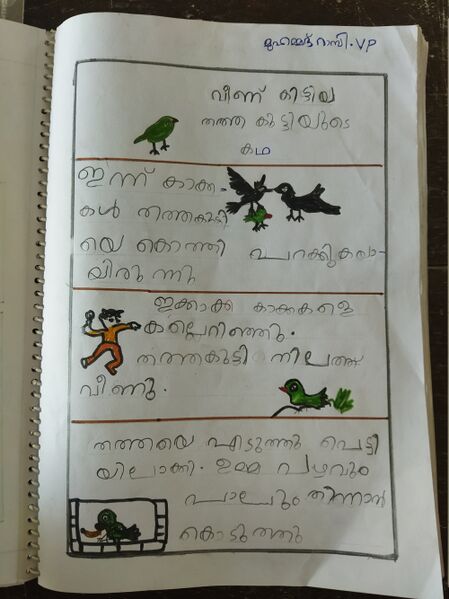 മുഹമ്മദ് റാസി. VP
വീണ് കിട്ടിയ
തത്ത കുട്ടിയുടെ
കഥ
ഇന്ന് കാക്ക
കൾ തത്തകുട്ടി
യെ കൊത്തി പറക്കുകയാ-
യിരുന്നു
ഇക്കാക്ക കാക്കകളെ
കല്ലെറിഞ്ഞു.
തത്തകുട്ടി നിലത്ത്
വീണു.
തത്തയെ എടുത്തു പെട്ടി
യിലാക്കി. ഉമ്മ പഴവും
പാലും തിന്നാൻ
കൊടുത്തു